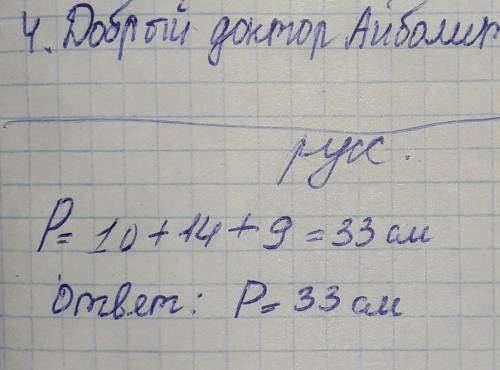 4. Добрый доктор Айболит
рус.
P = 10 + 14 + 9 = 33 см
Ответ: P = 33 см